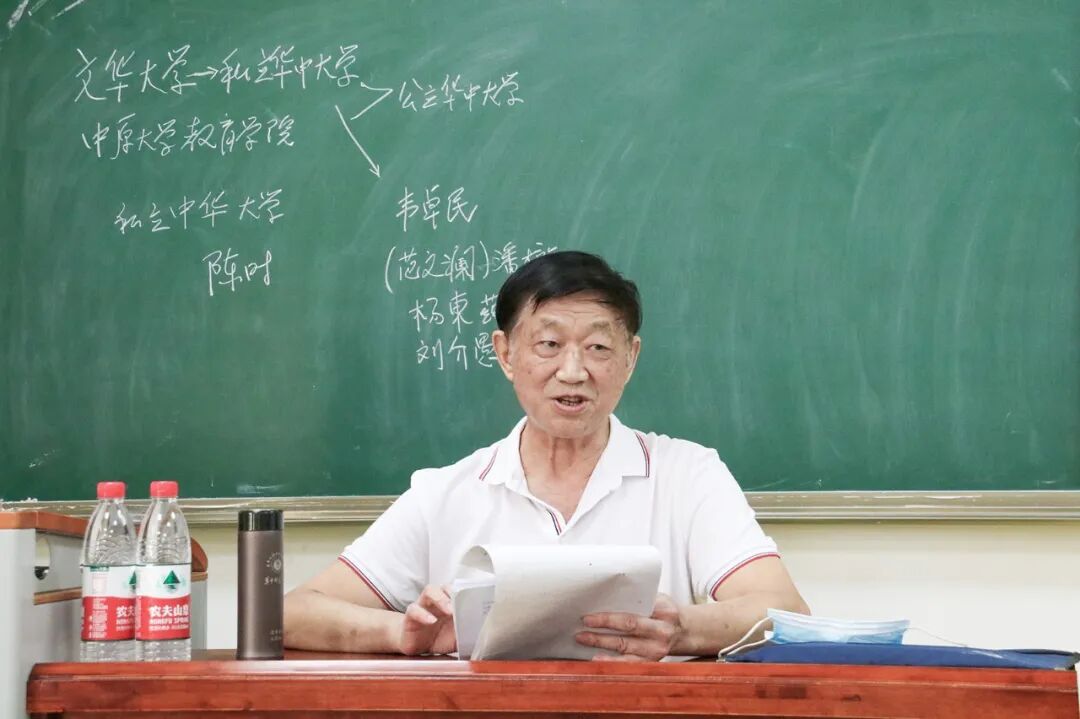 文华大学→私立华中大学
公立华中大学
中原大学教育学院
私立中华大学
韦卓民
陈时
(范文澜)潘
杨东
刘介愚
农夫
HONGFU SPRING
农夫山泉
NONGFU SPRING